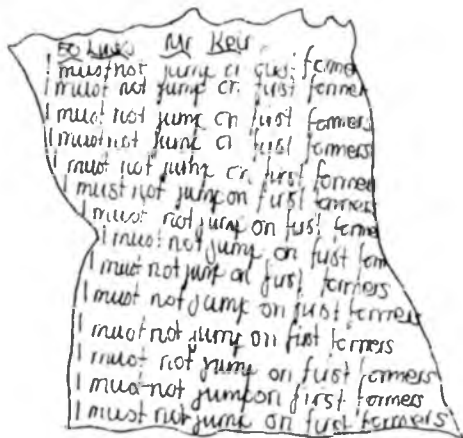 50 Lines Mr Keir.
I must not jump on first former
I must not jump on first former
I must not jump on first formers
I must not jump on first formers
I must not jump on first former
I must not jump on first formers
I must not jump on first forme
I must not jump on first form
I must not jump on first formers
I must not jump on first formers
I must not jump on first formers
I must not jump on first formers
I must not jump on first formers
I must not jump on first formers